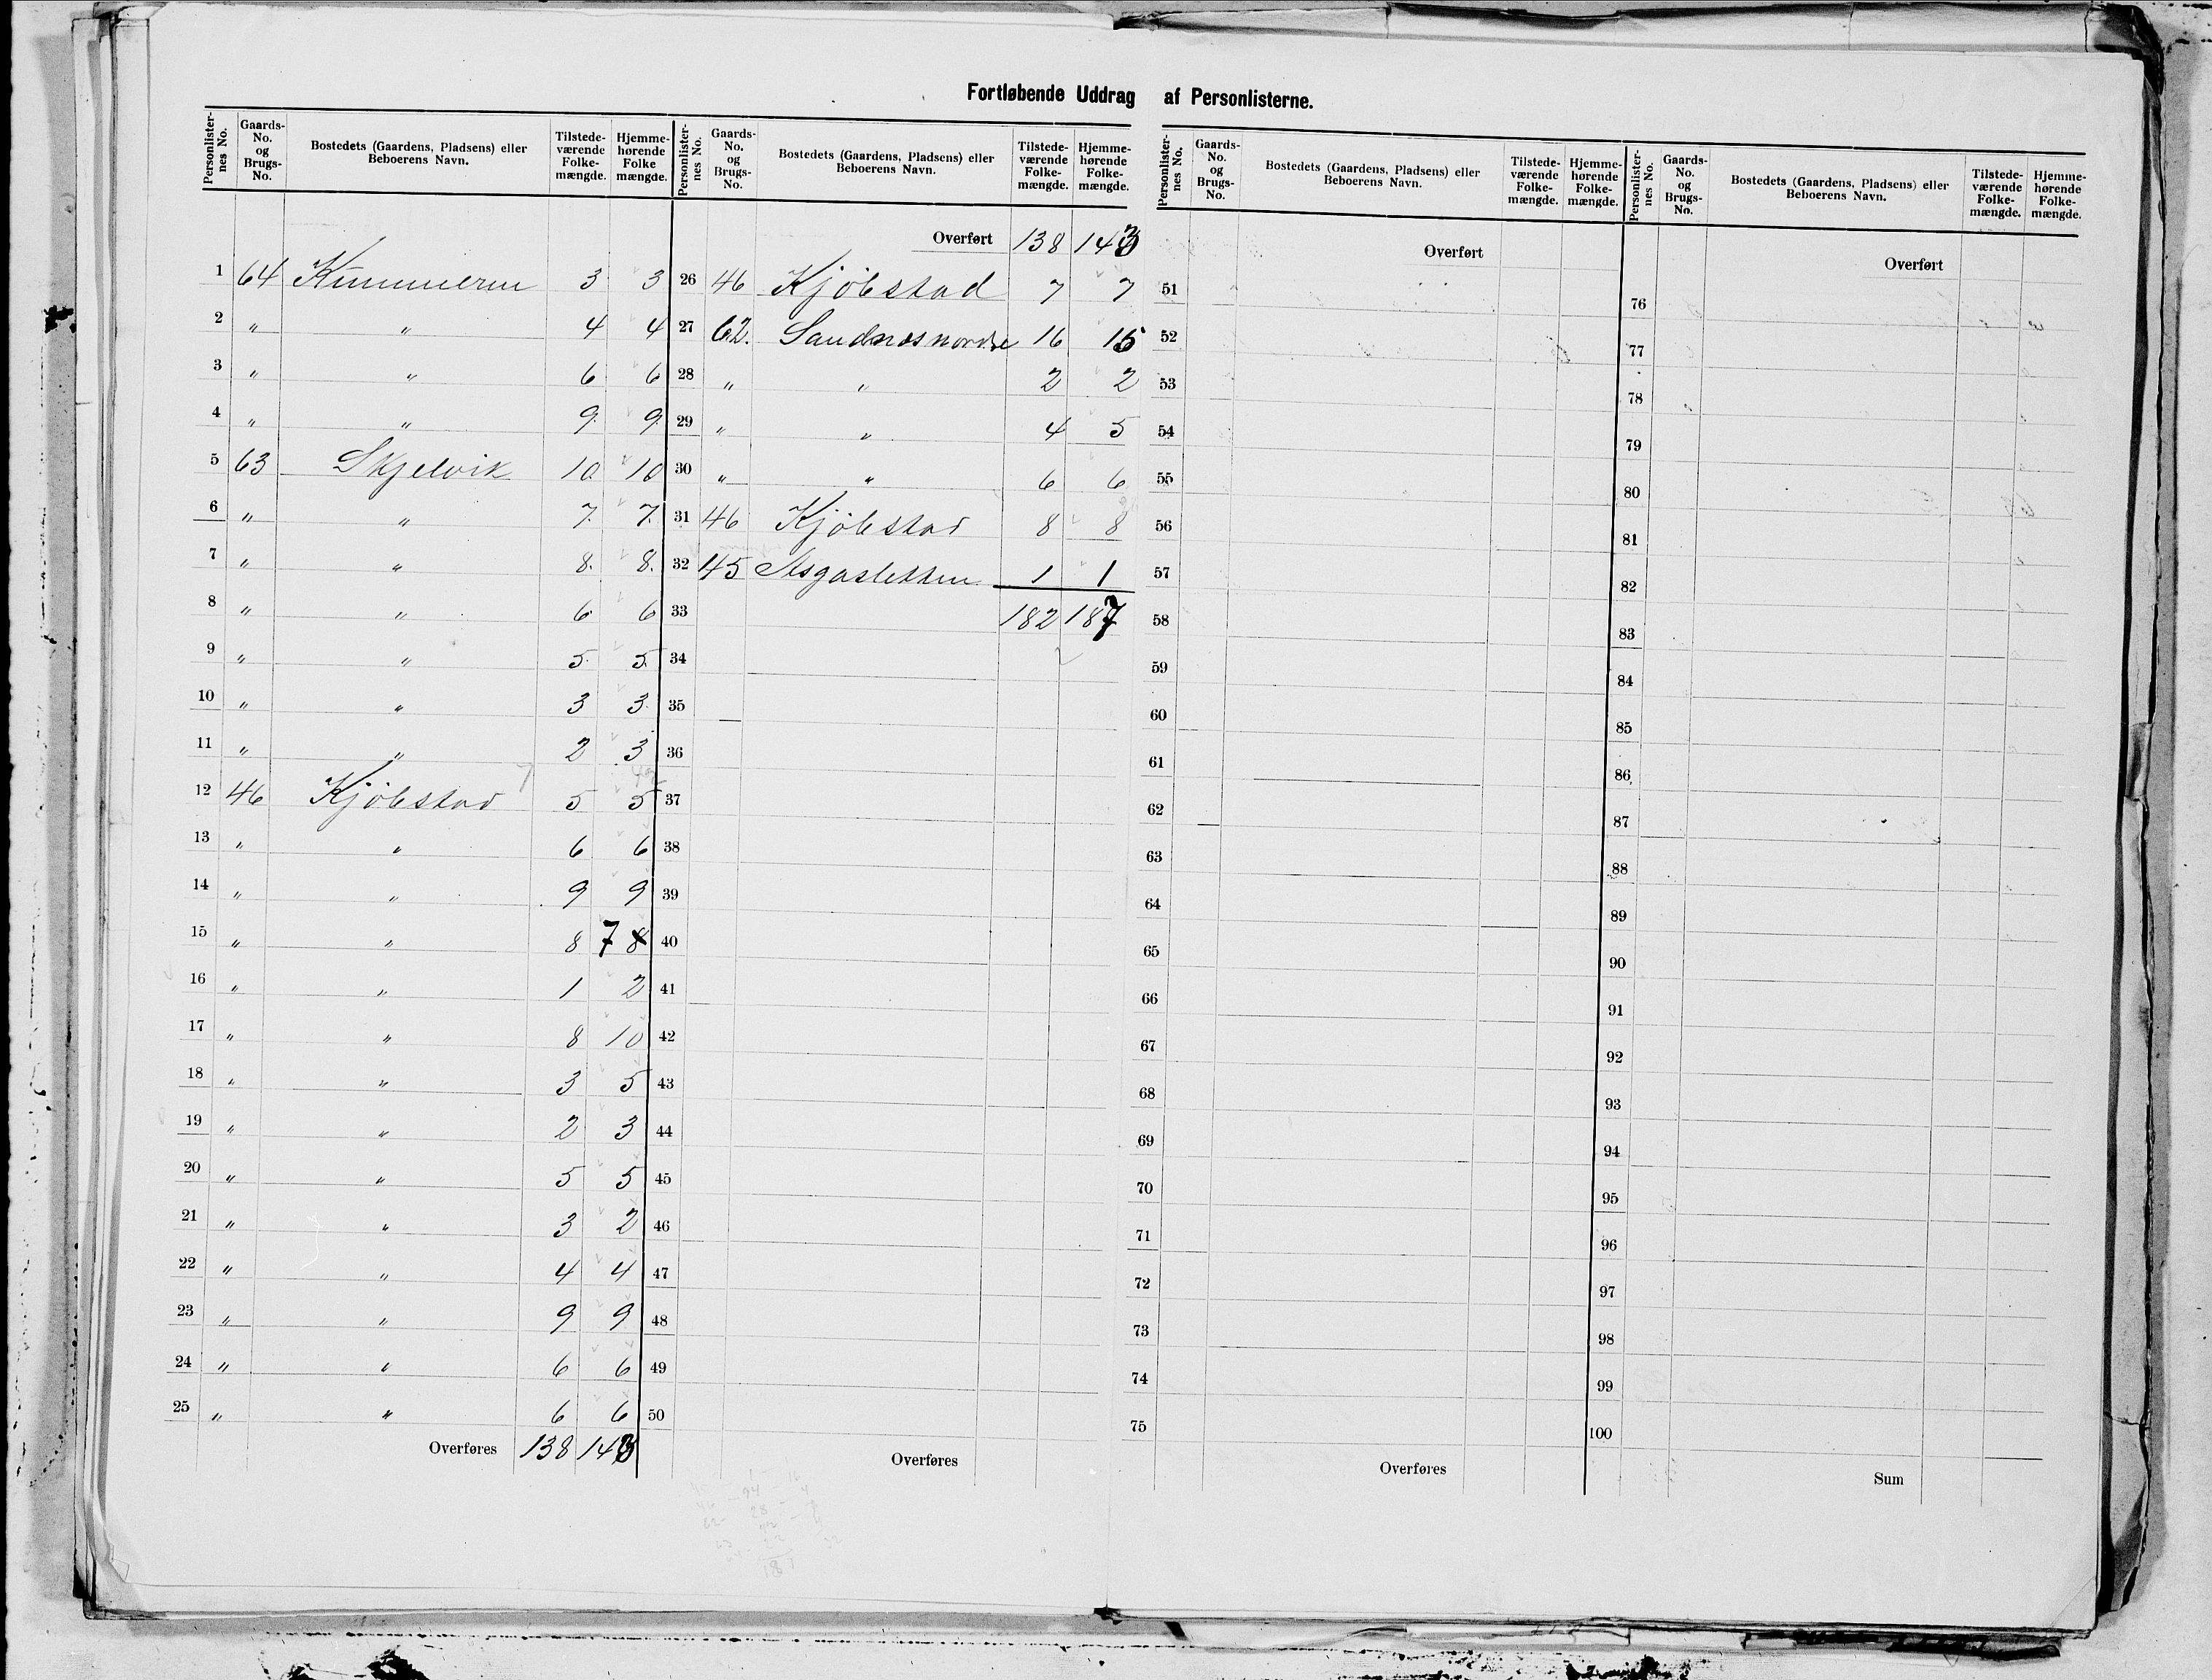 Fortløbende Uddrag af Personlisterne.
Personlister-nes No. Gaards-No. og Brugs-No. Bostedets (Gaardens, Pladsens) eller Beboerens Navn. Tilstede-værende Folke-mængde. Hjemme-hørende Folke mængde.
1 64 Kummeren 3 3
2 " " 4 4
3 " " 6 6
4 " " 9. 9.
5 63 Skjelvik 10 10
6 " " 7. 7.
7 " " 8. 8.
8 " " 6 6
9 " " 5. 5.
10 " " 3 3.
11 " " 2 3
12 46 Kjöbstad 5 5
13 " " 6 6
14 " " 9 9
15 " " 8 7 8
16 " " 1 2
17 " " 8 10
18 " " 3 5
19 " " 2 3
20 " " 5 5
21 " " 3 2
22 " " 4 4
23 " " 9 9
24 " " 6 6
25 " " 6 6
Overføres 138 143
Personlister-nes No. Gaards-No. og Brugs-No. Bostedets (Gaardens, Pladsens) eller Beboerens Navn. Tilstede-værende Folke-mængde. Hjemme-hørende Folke-mængde.
Overført 138 143
26 46 Kjöbstad 7 7
27 62. Sandnesnordre 16 15
28 " " 2 2
29 " " 4 5
30 " " 6 6
31 46 Kjöbstad 8 8
32 45 1 1
33 182 187
34
35
36
37
38
39
40
41
42
43
44
45
46
47
48
49
50
Overføres
Personlister-nes No. Gaards-No. og Brugs-No. Bostedets (Gaardens, Pladsens) eller Beboerens Navn. Tilstede-værende Folke-mængde. Hjemme-hørende Folke-mængde.
Overført
51
52
53
54
55
56
57
58
59
60
61
62
63
64
65
66
67
68
69
70
71
72
73
74
75
Overføres
Personlister-nes No. Gaards-No. og Brugs-No. Bostedets (Gaardens, Pladsens) eller Beboerens Navn. Tilstede-værende Folke-mængde. Hjemme-hørende Folke-mængde.
Overført
76
77
78
79
80
81
82
83
84
85
86
87
88
89
90
91
92
93
94
95
96
97
98
99
100
Sum